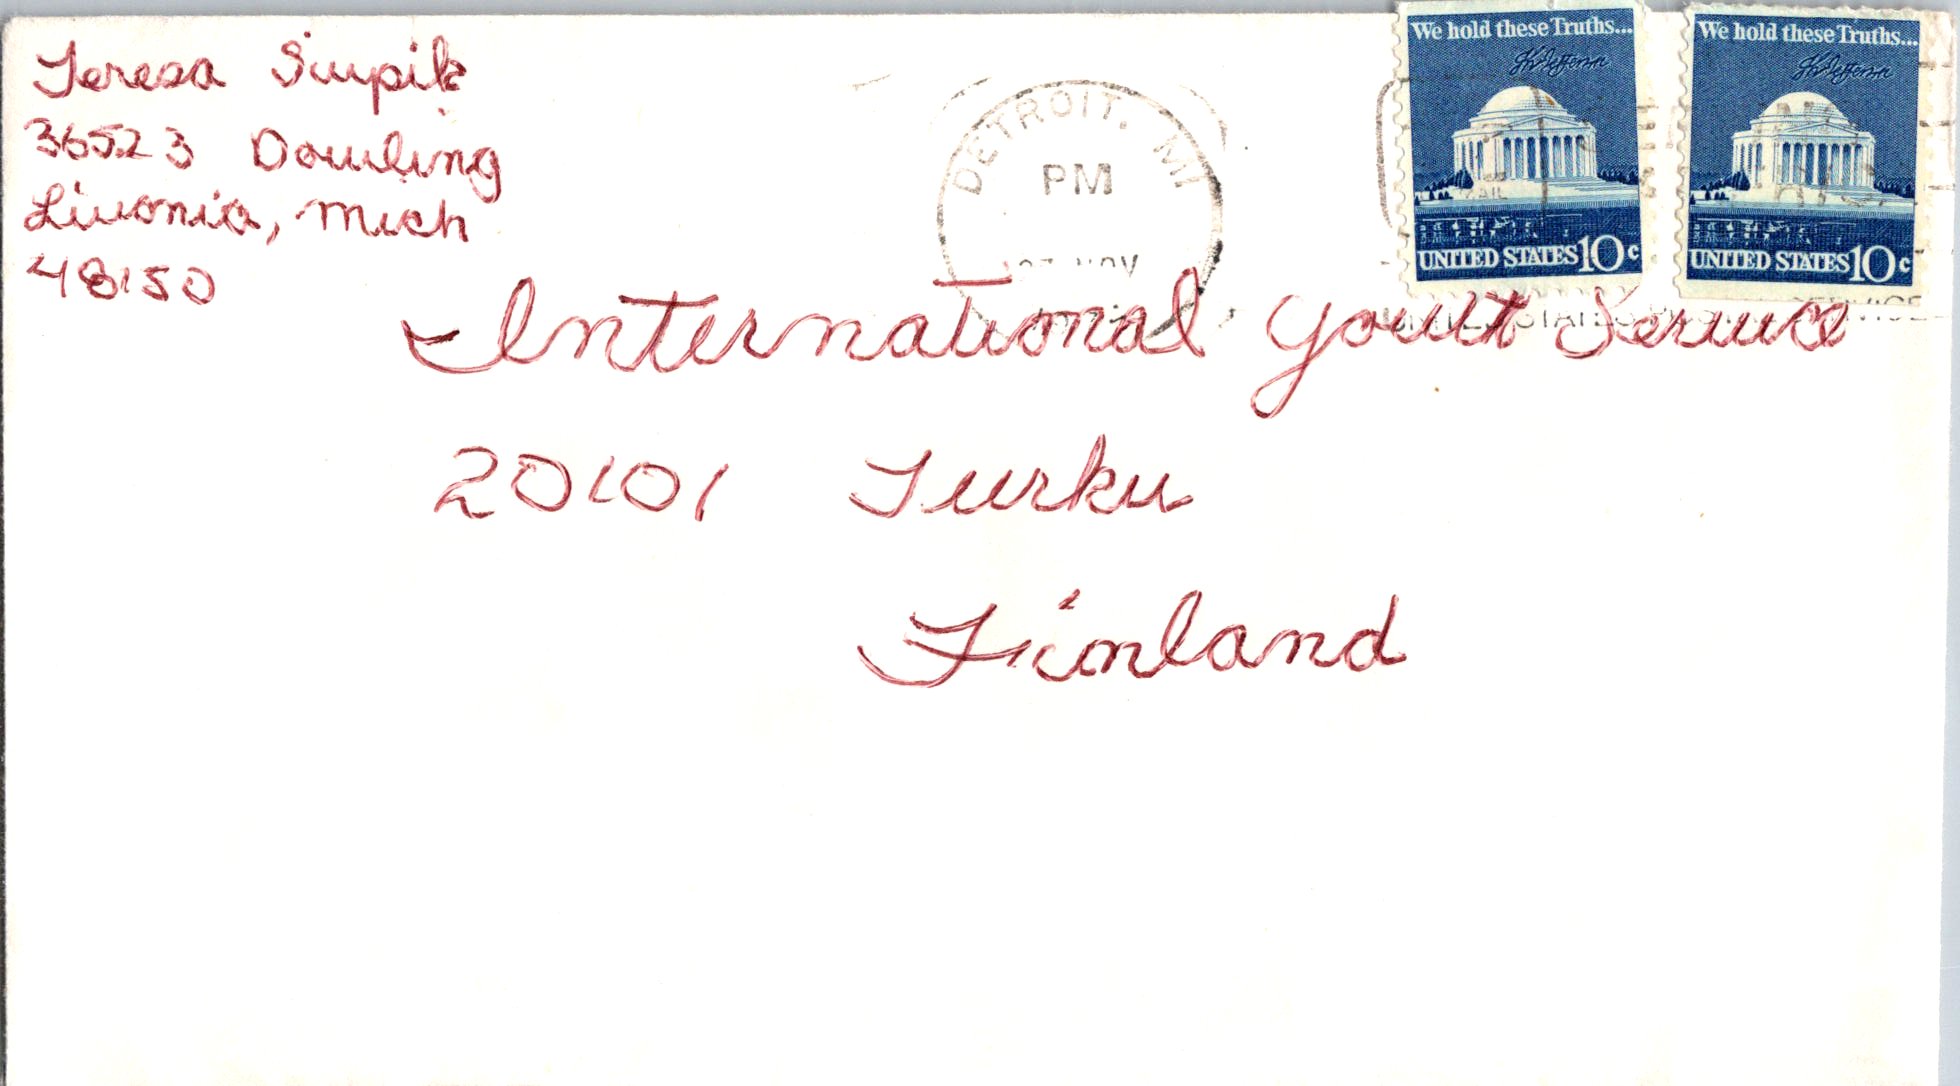 Teresa
36523 Dowling
Livonia, Mich
48150
DETROIT, MI
PM
NOV
We hold these Truths...
Th Jefferson
UNITED STATES 10c
We hold these Truths...
Th Jefferson
UNITED STATES 10c
UNITED STATES SERVICE
International Youth Service
20101 Turku
Finland